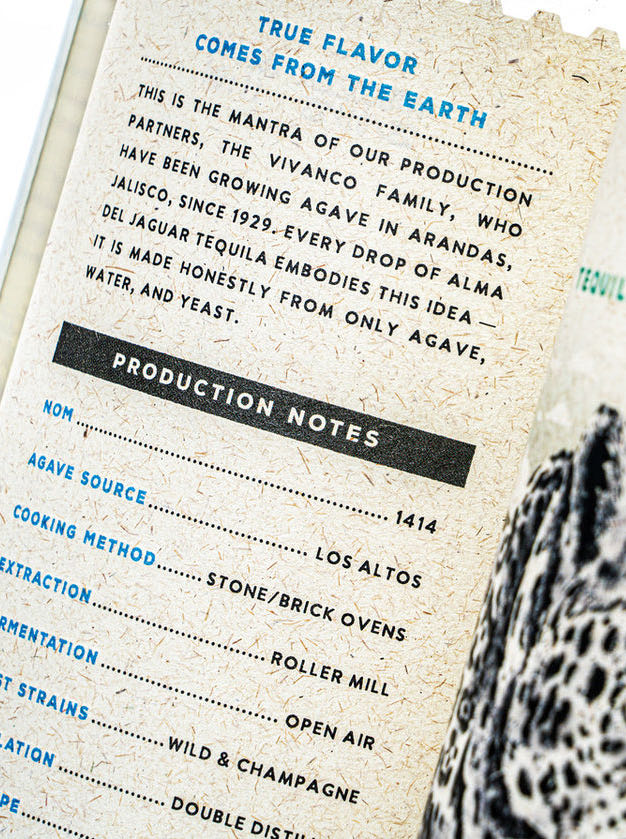 TRUE FLAVOR
COMES FROM THE EARTH
THIS IS THE MANTRA OF OUR PRODUCTION
PARTNERS, THE VIVANCO FAMILY, WHO
HAVE BEEN GROWING AGAVE IN ARANDAS,
JALISCO, SINCE 1929. EVERY DROP OF ALMA
DEL JAGUAR TEQUILA EMBODIES THIS IDEA —
IT IS MADE HONESTLY FROM ONLY AGAVE,
WATER, AND YEAST.
PRODUCTION NOTES
NOM 1414
AGAVE SOURCE LOS ALTOS
COOKING METHOD STONE/BRICK OVENS
EXTRACTION ROLLER MILL
RMENTATION OPEN AIR
ST STRAINS WILD & CHAMPAGNE
LATION DOUBLE DISTIL
PE
TEQUIL